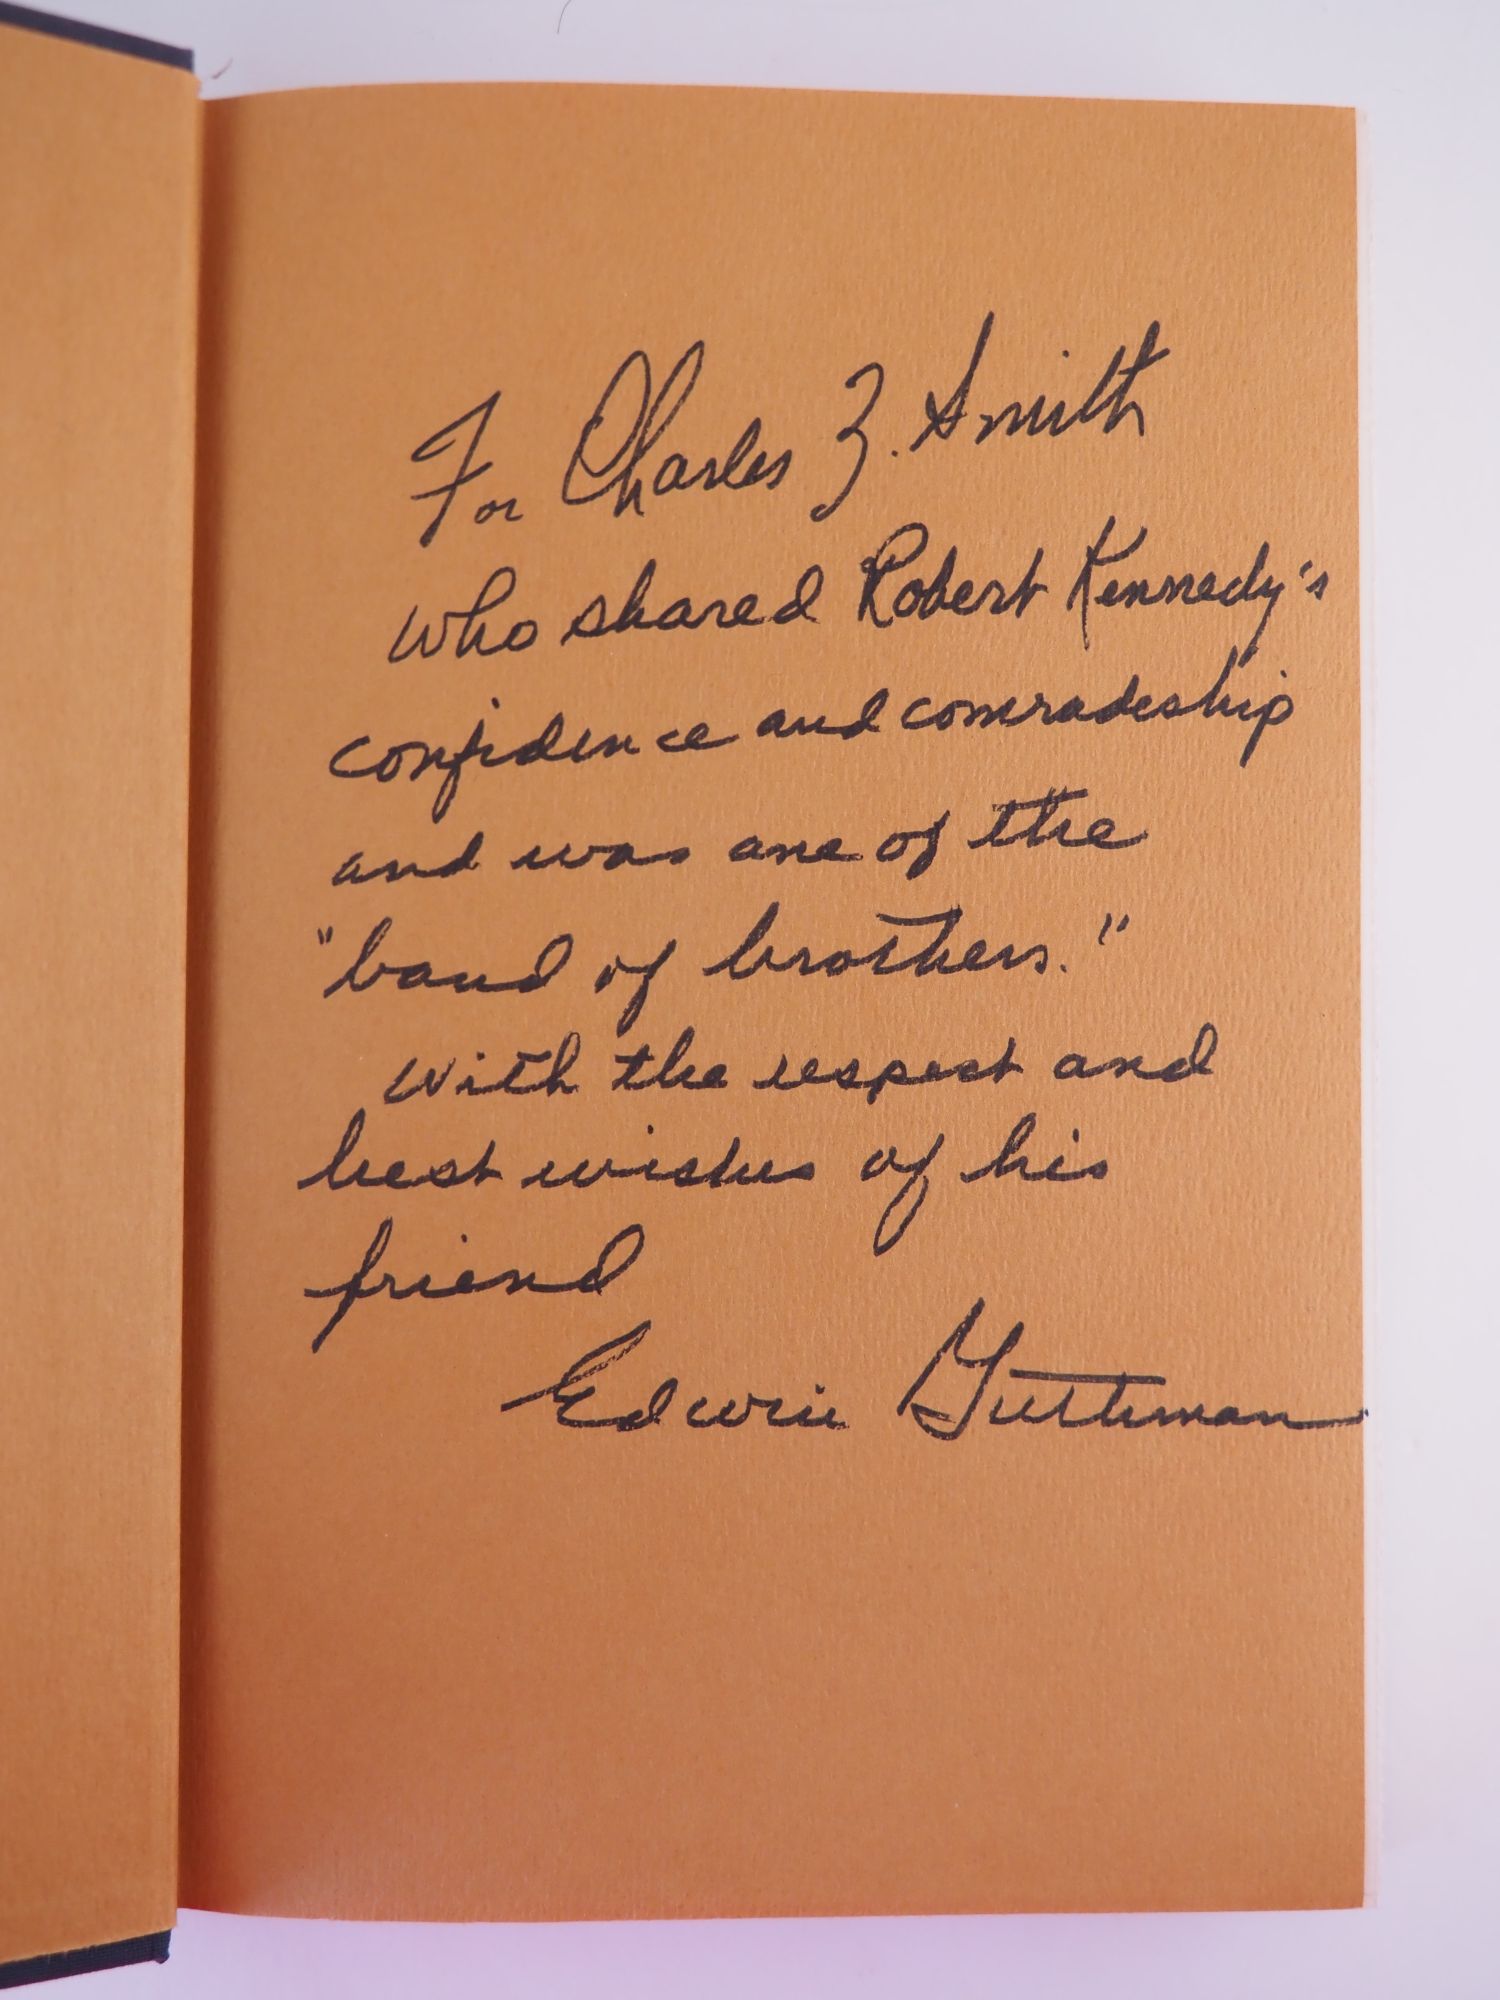 For Charles Z. Smith
who shared Robert Kennedy's
confidence and comradeship
and was one of the
"band of brothers."
With the respect and
best wishes of his
friend
Edwin Guthman